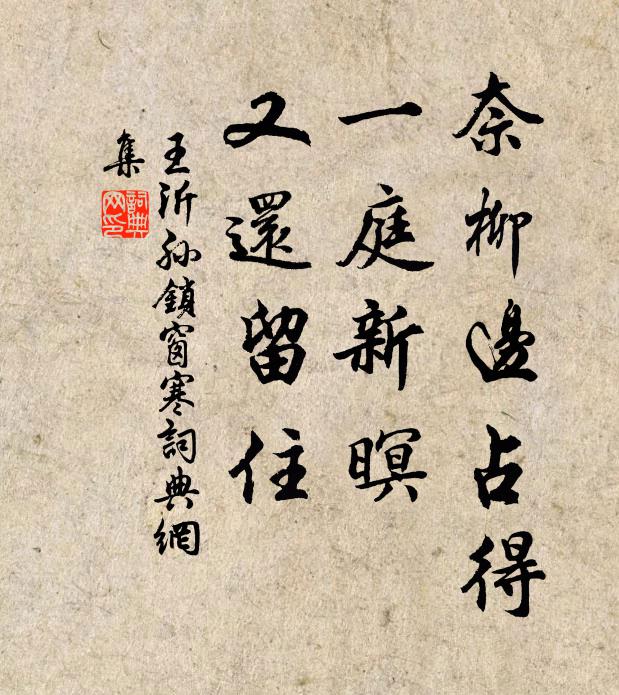 奈柳邊占得
一庭新暝
又還留住
王沂孙鎖窗寒詞典網
集
詞典
网印